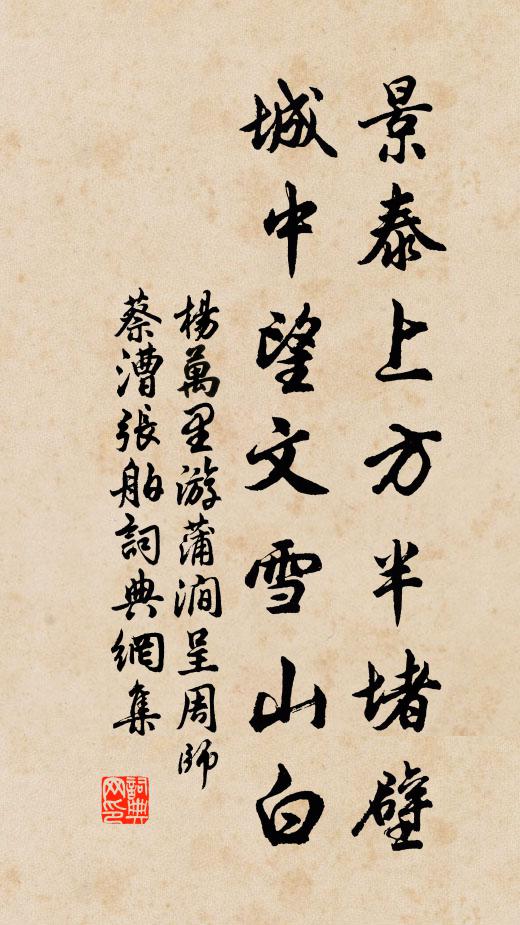 景泰上方半堵壁
城中望文雪山白
楊萬里游蒲澗呈周師
蔡漕張舶詞典網集
詞典
网印